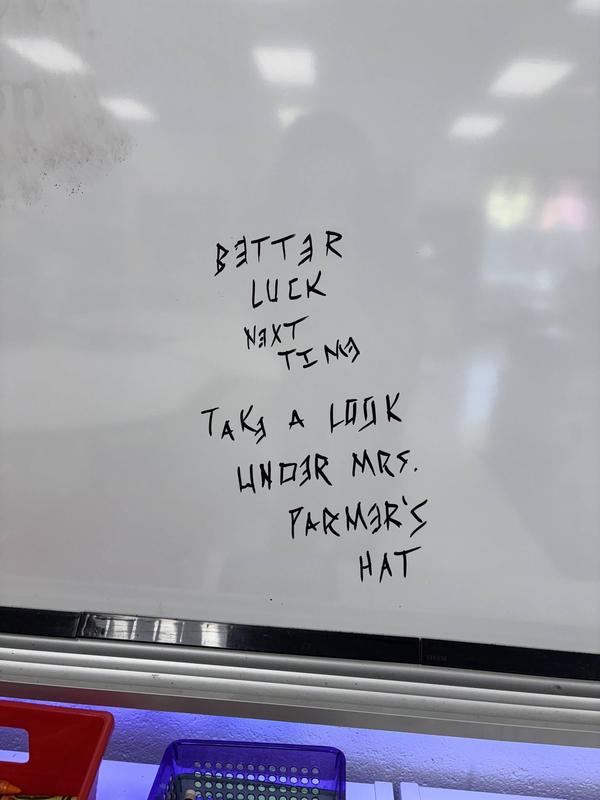 BETTER
LUCK
NEXT
TIME
TAKE A LOOK
UNDER MRS.
PARMER'S
HAT